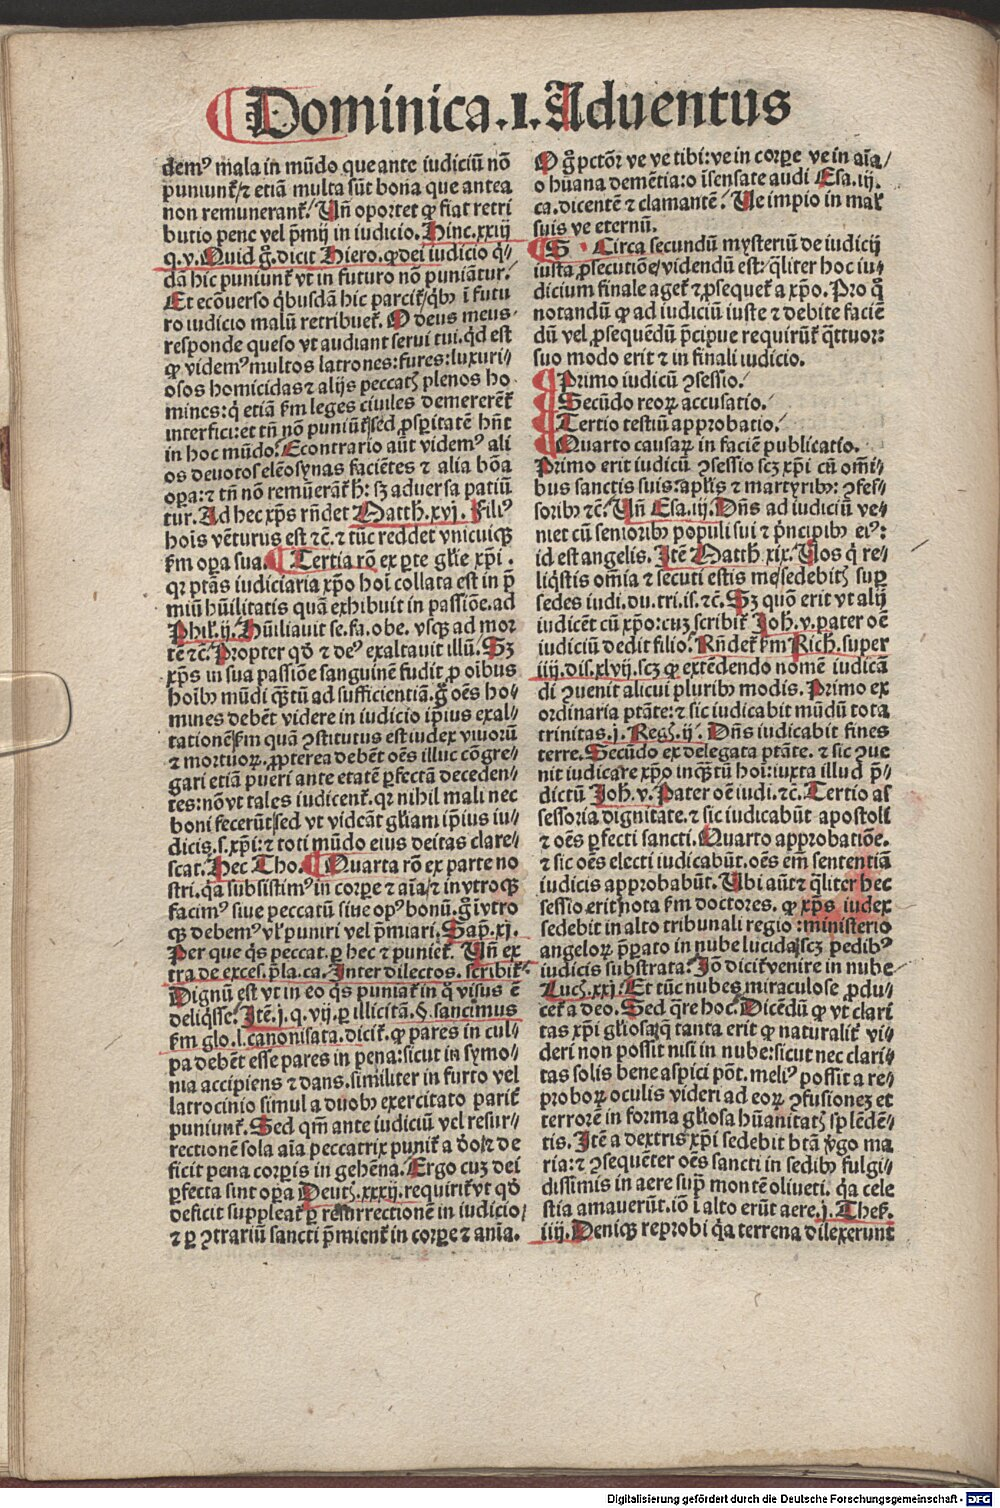 Dominica .I. Aduentus
demꝰ mala in mūdo que ante iudiciū nō
puniunt᷑/⁊ etiā multa sūt bona que antea
non remunerant᷑/ Vn̄ oportet ꝙ fiat retri
butio pene vel p̄mij in iudicio. Hinc.xxiij
q.v. Quid g̊. dicit Hiero. ꝙ dei iudicio q̇/
dā hic puniunt᷑ vt in futuro nō puniātur.
Et ecōuerso q̇busdā hic parcit᷑/q̇bꝫ ī futu
ro iudicio malū retribuet᷑. O deus meus
responde queso vt audiant serui tui. q̇d est
ꝙ videmꝰ multos latrones: fures: luxuri/
osos homicidas ⁊ alijs peccatꝭ plenos ho
mines: q̇ etiā ẜm leges ciuiles demererēt᷑
interfici: et tn̄ nō puniūt᷑/sed ꝓsꝑitatē hn̄t
in hoc mūdo. Econtrario aūt videmꝰ ali
os deuotos eleōsynas faciētes ⁊ alia bōa
oꝑa: ⁊ tn̄ nō remūerāt᷑ h̄: sꝫ aduersa patiū
tur. Ad hec xp̄s rn̄det Matth̄.xvj. Filiꝰ
hoīs vēturus est ⁊c̄. ⁊ tūc reddet vnicuiqꝫ
ẜm oꝑa sua. Tertia rō ex ꝑte gl̄ie xp̄i.
qꝛ ptās iudiciaria xp̄o hoī collata est in p̄
miū hūilitatis quā exhibuit in passiōe. ad
Phil̓.ij. Hūiliauit se.fa.obe. vsqꝫ ad mor
tē ⁊c̄. Propter qd̓ ⁊ deꝰ exaltauit illū. Sꝫ
xp̄s in sua passiōe sanguinē fudit ꝓ oībus
hoībꝫ mūdi qꝫtū ad sufficientiā. g̊ oēs ho/
mines debēt videre in iudicio ip̄ius exal/
tationē/ẜm quā ꝯstitutus est iudex viuorū
⁊ mortuoꝝ. ꝓpterea debēt oēs illuc cōgre/
gari etiā pueri ante etatē ꝑfectā deceden/
tes: nō vt tales iudicent᷑. qꝛ nihil mali nec
boni fecerūt/sed vt videāt gl̄iam ip̄ius iu/
dicis.s.xp̄i: ⁊ toti mūdo eius deitas clare/
scat. Hec Tho. Quarta rō ex parte no
stri. q̇a subsistimꝰ in corꝑe ⁊ aīa/⁊ in vtroqꝫ
facimꝰ siue peccatū siue opꝰ bonū. g̊ ī vtro
qꝫ debemꝰ vl̓ puniri vel p̄miari. Sap̄.xj.
Per que q̇s peccat. ꝑ hec ⁊ puniet᷑. Vn̄ ex
tra de exces. p̄la. ca. Inter dilectos. scribit᷑
Dignū est vt in eo q̇s puniat᷑ in q̊ visus ē
deliq̇sse. Itē.j.q.vij. ꝑ illicitā.§.sancimus
ẜm glo.l. canonisata. dicit᷑. ꝙ pares in cul/
pa debēt esse pares in pena: sicut in symo/
nia accipiens ⁊ dans. similiter in furto vel
latrocinio simul a duobꝫ exercitato parit᷑
puniunt᷑. Sed qm̄ ante iudiciū vel resur/
rectionē sola aīa peccatrix punit᷑ a deo/⁊ de
ficit pena corꝑis in gehēna. Ergo cuꝫ dei
ꝑfecta sint oꝑa Deutꝭ.xxxij. requirit᷑ vt qd̓
deficit suppleat᷑ ꝑ resurrectionē in iudicio/
⁊ ꝑ ꝯtrariū sancti p̄mient᷑ in corꝑe ⁊ anīa.
O g̊ pctōr ve ve tibi: ve in corꝑe ve in aīa/
o hūana demētia: o īsensate audi Esa.iij.
ca. dicentē ⁊ clamantē. Ve impio in malū
suis ve eternū.
S Circa secundū mysteriū de iudicij
iusta ꝓsecutiōe/videndū est: q̇liter hoc iu/
dicium finale aget᷑ ⁊ ꝓsequet᷑ a xp̄o. Pro q̊
notandū ꝙ ad iudiciū iuste ⁊ debite faciē
dū vel ꝓsequēdū p̄cipue requirūt᷑ q̇ttuor:
suo modo erit ⁊ in finali iudicio.
Primo iudicū ꝯsessio.
Secūdo reoꝝ accusatio.
Tertio testiū approbatio.
Quarto causaꝝ in faciē publicatio.
Primo erit iudicū ꝯsessio scꝫ xp̄i cū om̄i/
bus sanctis suis: apl̓is ⁊ martyribꝫ: ꝯfes/
soribꝫ ⁊c̄. Vn̄ Esa.iij. Dn̄s ad iudiciū ve/
niet cū senioribꝫ populi sui ⁊ p̓ncipibꝫ eiꝰ:
id est angelis. Itē Matth̄.xix. Vos q̇ re/
liq̇stis om̄ia ⁊ secuti estis me/sedebitꝭ suꝑ
sedes iudi.du.tri.is.⁊c̄. Sꝫ quō erit vt alij
iudicēt cū xp̄o: cuꝫ scribit᷑ Joh̄.v. pater oē
iudiciū dedit filio. Rn̄det᷑ ẜm Rich̄. super
iiij.dis.xlvij. scꝫ ꝙ extēdendo nomē iudicā
di ꝯuenit alicui pluribꝫ modis. Primo ex
ordinaria ptāte: ⁊ sic iudicabit mūdū tota
trinitas.j. Regꝭ.ij. Dn̄s iudicabit fines
terre. Secūdo ex delegata ptāte. ⁊ sic ꝯue
nit iudicare xp̄o inqꝫtū hoī: iuxta illud p̄/
dictū Joh̄.v. Pater oē iudi.⁊c̄. Tertio as
sessoria dignitate. ⁊ sic iudicabūt apostoli
⁊ oēs ꝑfecti sancti. Quarto approbatiōe.
⁊ sic oēs electi iudicabūt. oēs em̄ sententiā
iudicis approbabūt. Vbi aūt ⁊ q̇liter hec
sessio erit/nota ẜm doctores. ꝙ xp̄s iudex
sedebit in alto tribunali regio: ministerio
angeloꝝ p̄parato in nube lucida/scꝫ pedibꝰ
iudicis substrata. Iō dicit᷑ venire in nube
Lucꝭ.xxj. Et tūc nubes miraculose ꝓdu/
cet᷑ a deo. Sed q̄re hoc. Dicēdū ꝙ vt clari
tas xp̄i gl̄iosa/q̄ tanta erit ꝙ naturalit᷑ vi/
deri non possit nisi in nube: sicut nec clari/
tas solis bene aspici pōt. meliꝰ possit a re/
proboꝝ oculis videri ad eoꝝ ꝯfusionez et
terrorē in forma gl̄iosa hūanitatꝭ splēdē/
tis. Itē a dextris xp̄i sedebit btā v̓go ma
ria: ⁊ ꝯsequēter oēs sancti in sedibꝫ fulgi/
dissimis in aere supra montē oliueti. q̇a cele
stia amauerūt. iō ī alto erūt aere.j. Thes̓.
iiij. Deniqꝫ reprobi q̇a terrena dilexerunt
Digitalisierung gefördert durch die Deutsche Forschungsgemeinschaft - DFG